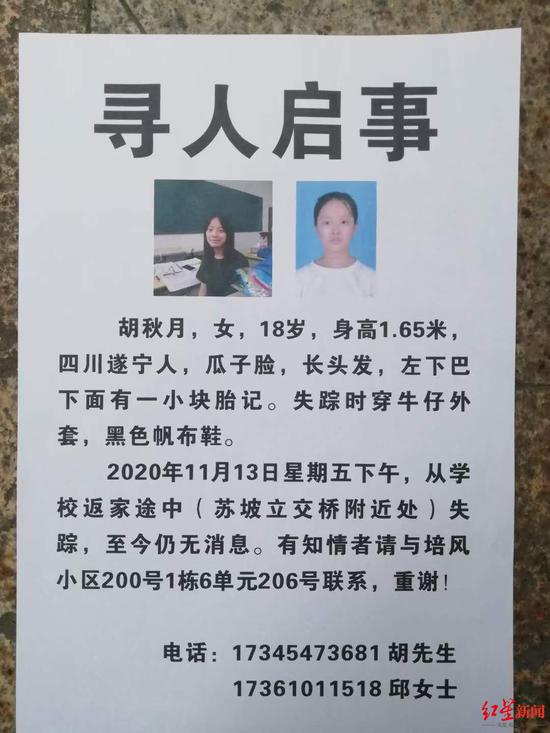 寻人启事
胡秋月，女，18岁，身高1.65米，
四川遂宁人，瓜子脸，长头发，左下巴
下面有一小块胎记。失踪时穿牛仔外
套，黑色帆布鞋。
2020年11月13日星期五下午，从学
校返家途中（苏坡立交桥附近处）失
踪，至今仍无消息。有知情者请与培风
小区200号1栋6单元206号联系，重谢！
电话：17345473681 胡先生
17361011518 邱女士
红星新闻